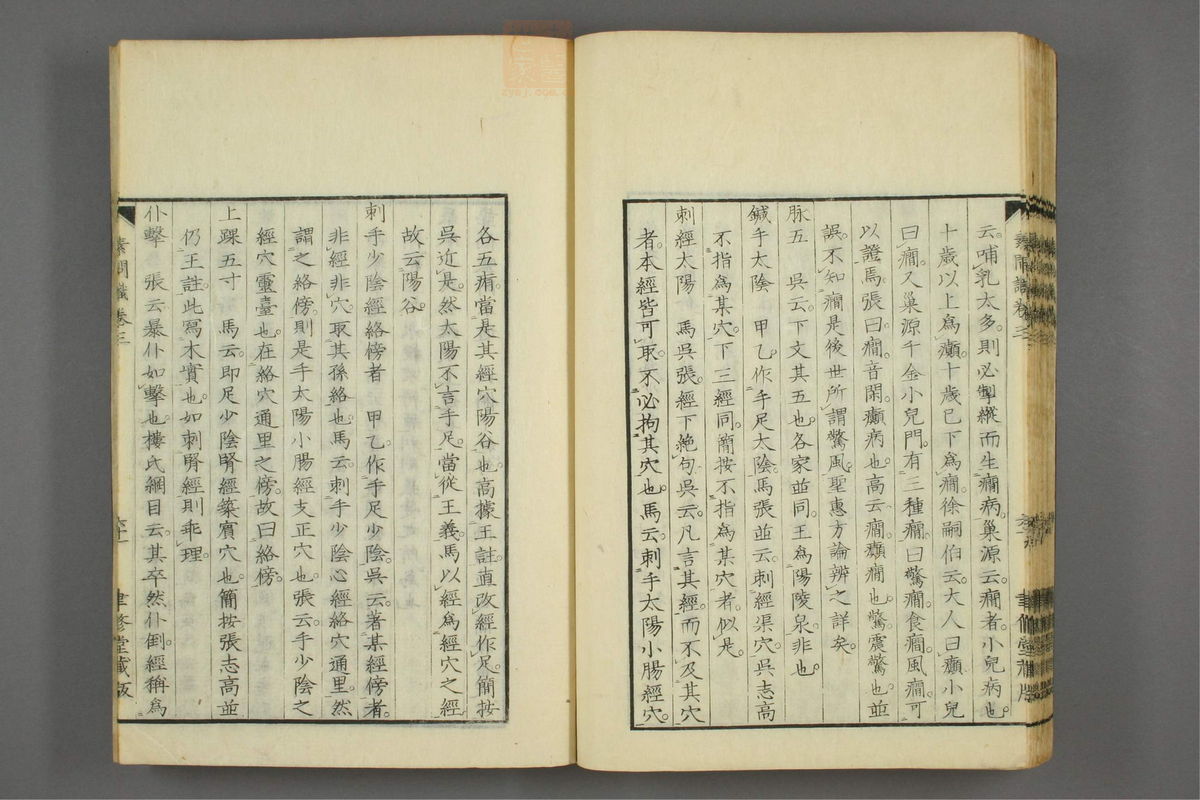 云。哺乳太多。則必掣縱而生癇病。巢源云。癇者。小兒病也。
十歲以上爲癲。十歲已下爲癇。徐嗣伯云。大人曰癲。小兒
曰癇。又巢源千金小兒門。有三種癇。曰驚癇。食癇。風癇。可
以證焉。張曰。癇音閑。癲病也。高云。癇。癲癇也。驚。震驚也。並
誤。不知癇是後世所謂驚風。聖惠方論辨之詳矣。
脈五　吳云。下文其五也。各家並同。王爲陽陵泉。非也。
鍼手太陰　甲乙。作手足太陰。馬張並云。刺經渠穴。吳志高
不指爲某穴。下三經同。簡按不指爲某穴者。似是。
刺經太陽　馬吳張經下絶句。吳云。凡言其經。而不及其穴
者。本經皆可取。不必拘其穴也。馬云。刺手太陽小腸經穴。
素問識卷三
聿修堂藏版
各五痏。當是其經穴陽谷也。高據王註。直改經作足。簡按
吳近是。然太陽不言手足。當從王義。馬以經爲經穴之經。
故云陽谷。
刺手少陰經絡傍者　甲乙。作手足少陰。吳云。著某經傍者。
非經非穴。取其孫絡也。馬云。刺手少陰心經絡穴通里。然
謂之絡傍。則是手太陽小腸經支正穴也。張云。手少陰之
經穴靈臺也。在絡穴通里之傍。故曰絡傍。
上踝五寸　馬云。即足少陰腎經築賓穴也。簡按張志高並
仍王註。此寫木實也。如刺腎經則乖理。
仆擊　張云。暴仆如擊也。樓氏綱目云。其卒然仆倒。經稱爲
素問識卷三
六十一
聿修堂藏版